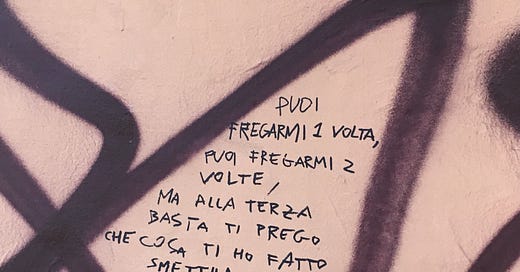 PUOI
FREGARMI 1 VOLTA,
PUOI FREGARMI 2
VOLTE,
MA ALLA TERZA
BASTA TI PREGO
CHE COSA TI HO FATTO